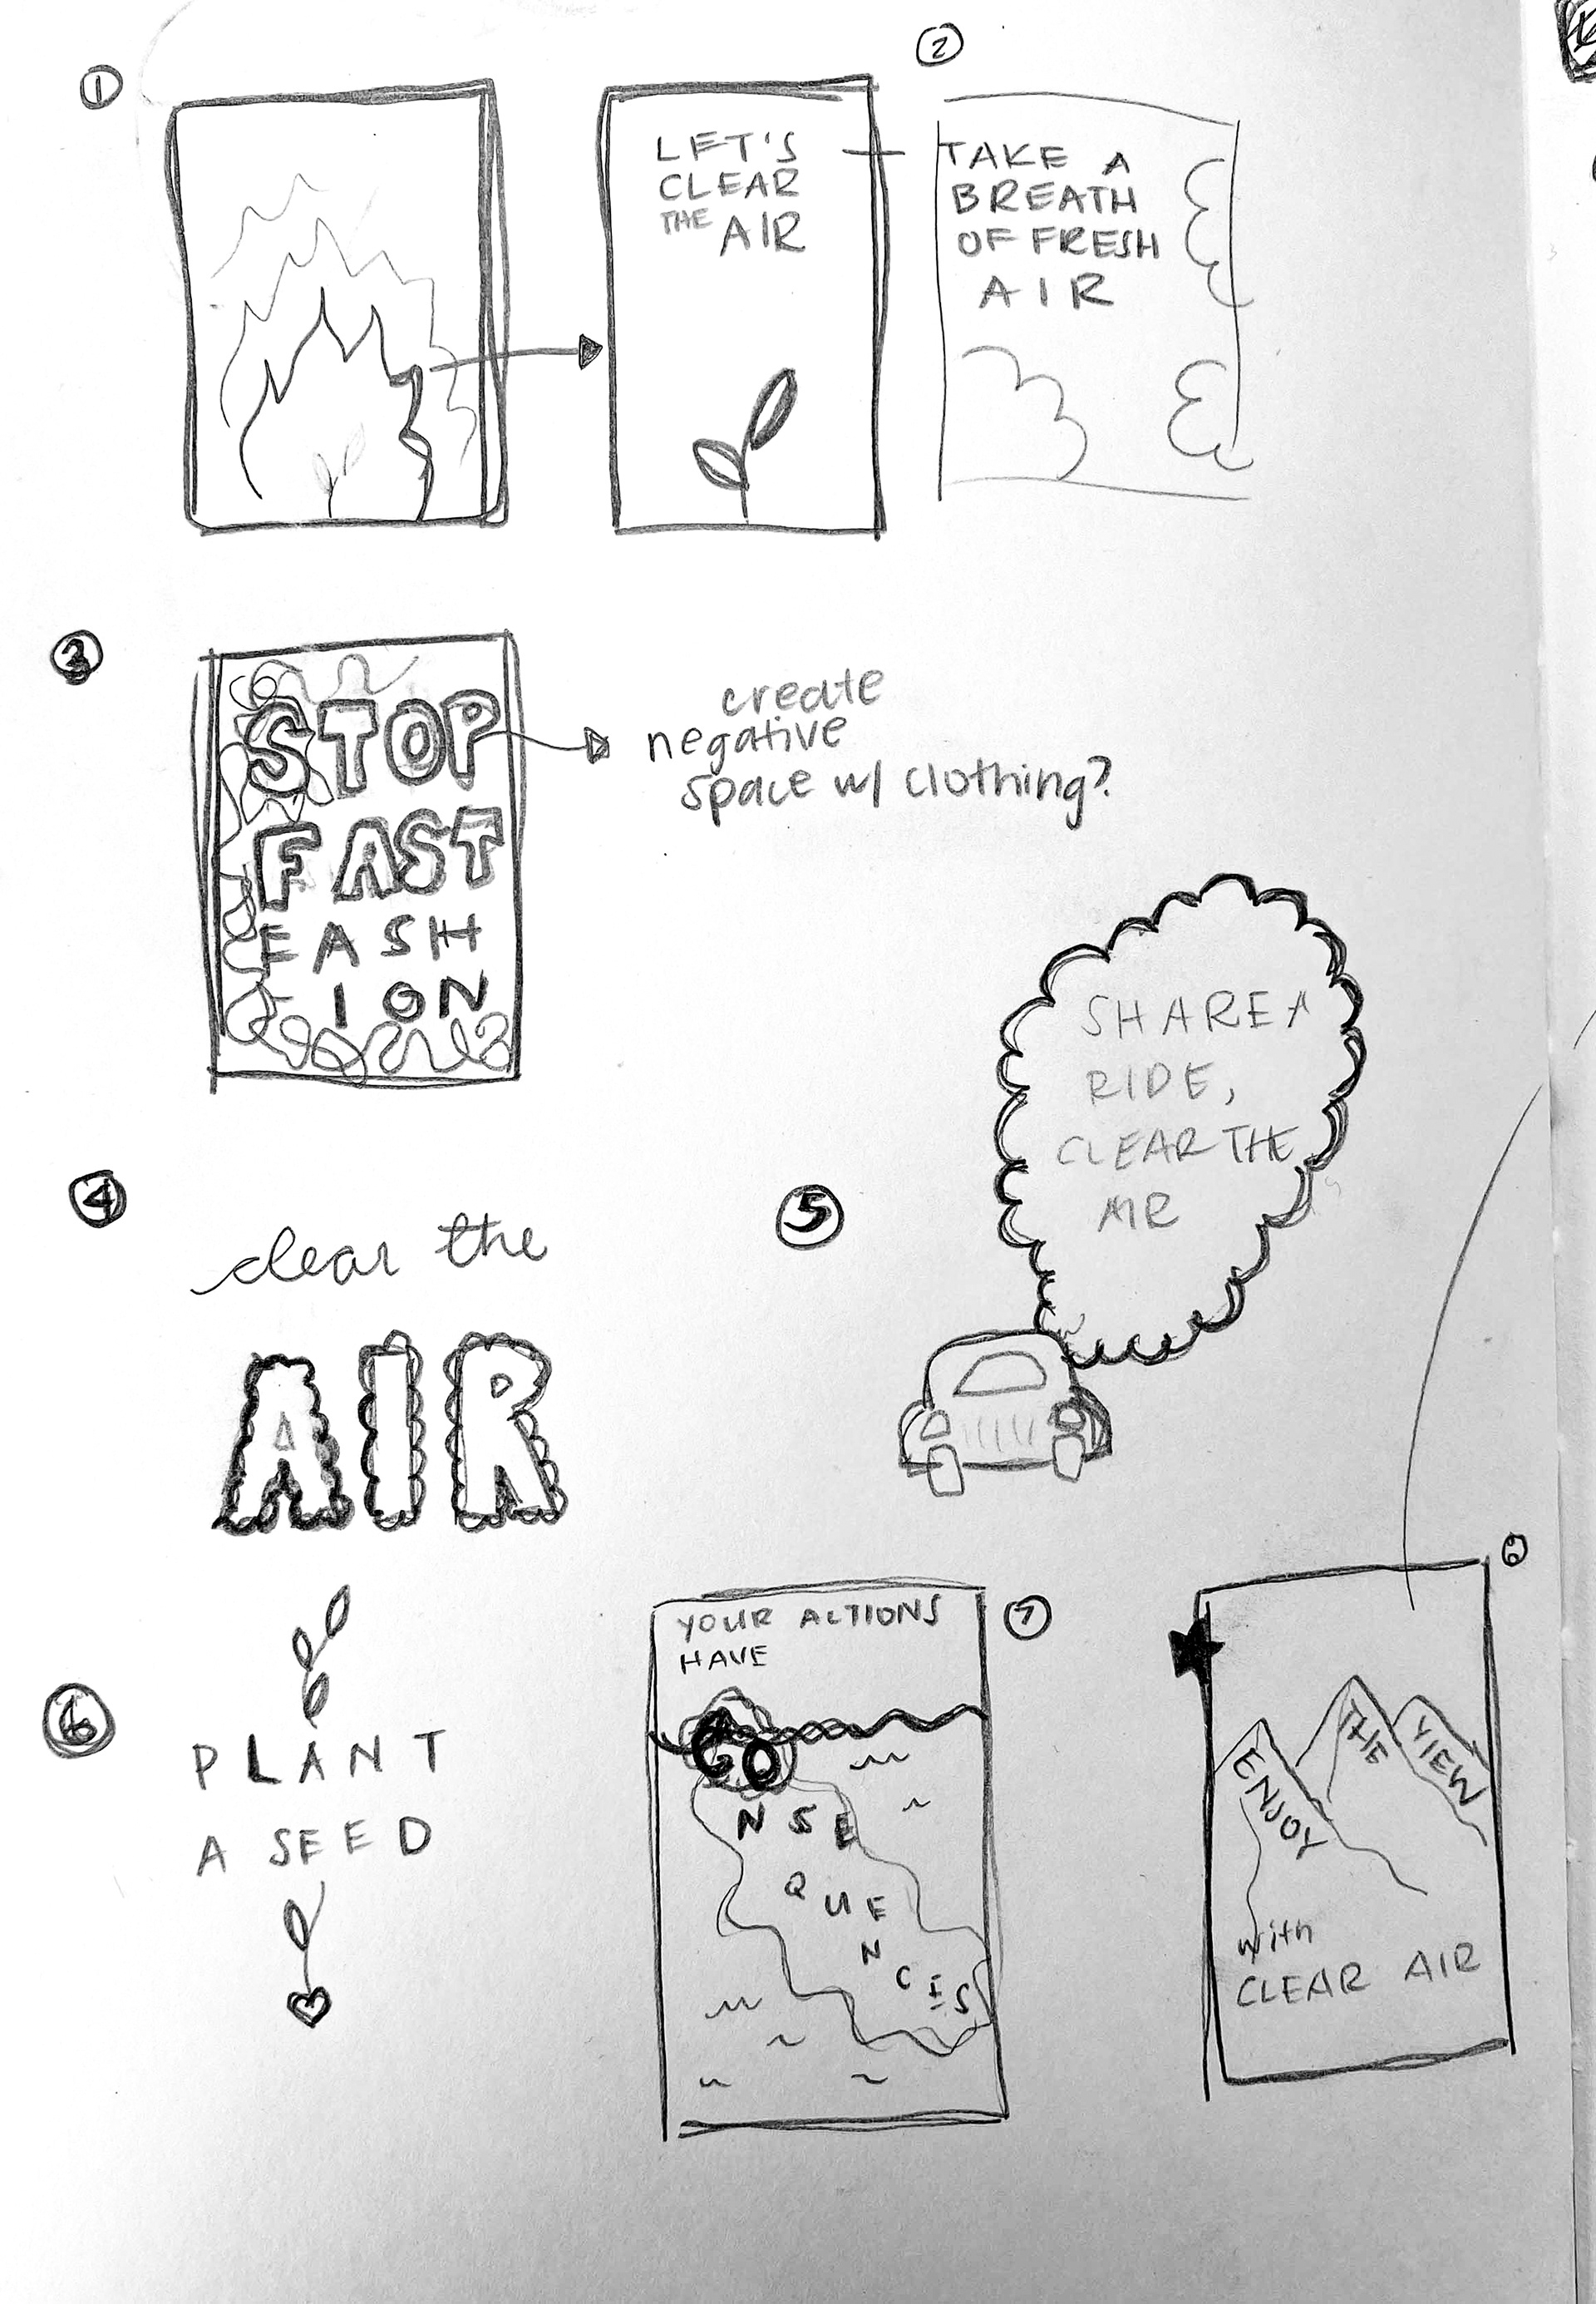 1
LET'S
CLEAR
THE AIR
2
TAKE A
BREATH
OF FRESH
AIR
3
STOP
FAST
FASH
ION
create
negative
space w/ clothing?
4
clear the
AIR
5
SHARE A
RIDE,
CLEAR THE
AIR
6
PLANT
A SEED
7
YOUR ACTIONS
HAVE
CO
NSE
QUEN
CES
8
ENJOY
THE
VIEW
with
CLEAR AIR